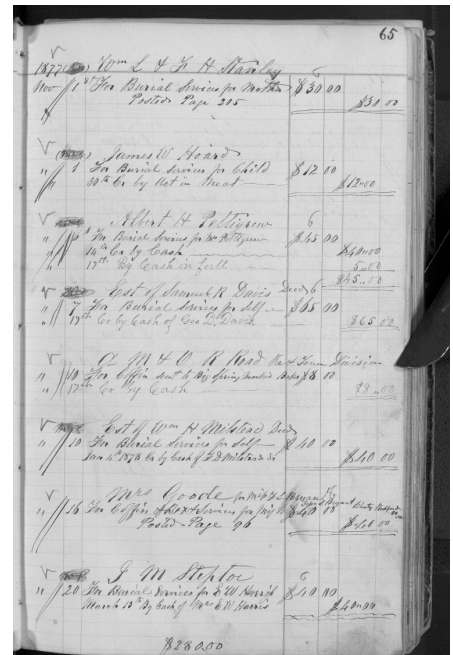 65
1877 Wm L & F H Stanley 6
Nov 1st For Burial Services for Mother $30 00
Posted Page 205 $30.00
James W Hoard
" 1 For Burial Services for Child $12 00
30th Cr by Act in Meat $12.00
Albert H Pettigrew 6
" 6 For Burial Services for Mr Pettigrew $45 00
14th Cr By Cash $40.00
" 17th By Cash in full 5.00
$45.00
Est of Samuel R Davis Decd 6
" 7 For Burial Services for Self $65 00
" 17th Cr by Cash of Geo D. Davis $65.00
A M & O R Road Division
" 10 For Coffin to Big Spring $8 00
" 17th Cr by Cash $8.00
Est of Wm H Milstead Decd
" 10 For Burial Services for Self $40 00
Jan 4th 1878 Cr by Cash of F D Milstead $40.00
Mrs Goode for
" 16 For Coffin Box & Services for $40 00
Posted Page 96 $40.00
J M Steptoe 6
" 20 For Burial Services for E W Harris $40 00
March 13th By Cash of Mrs E W Harris $40.00
$280.00